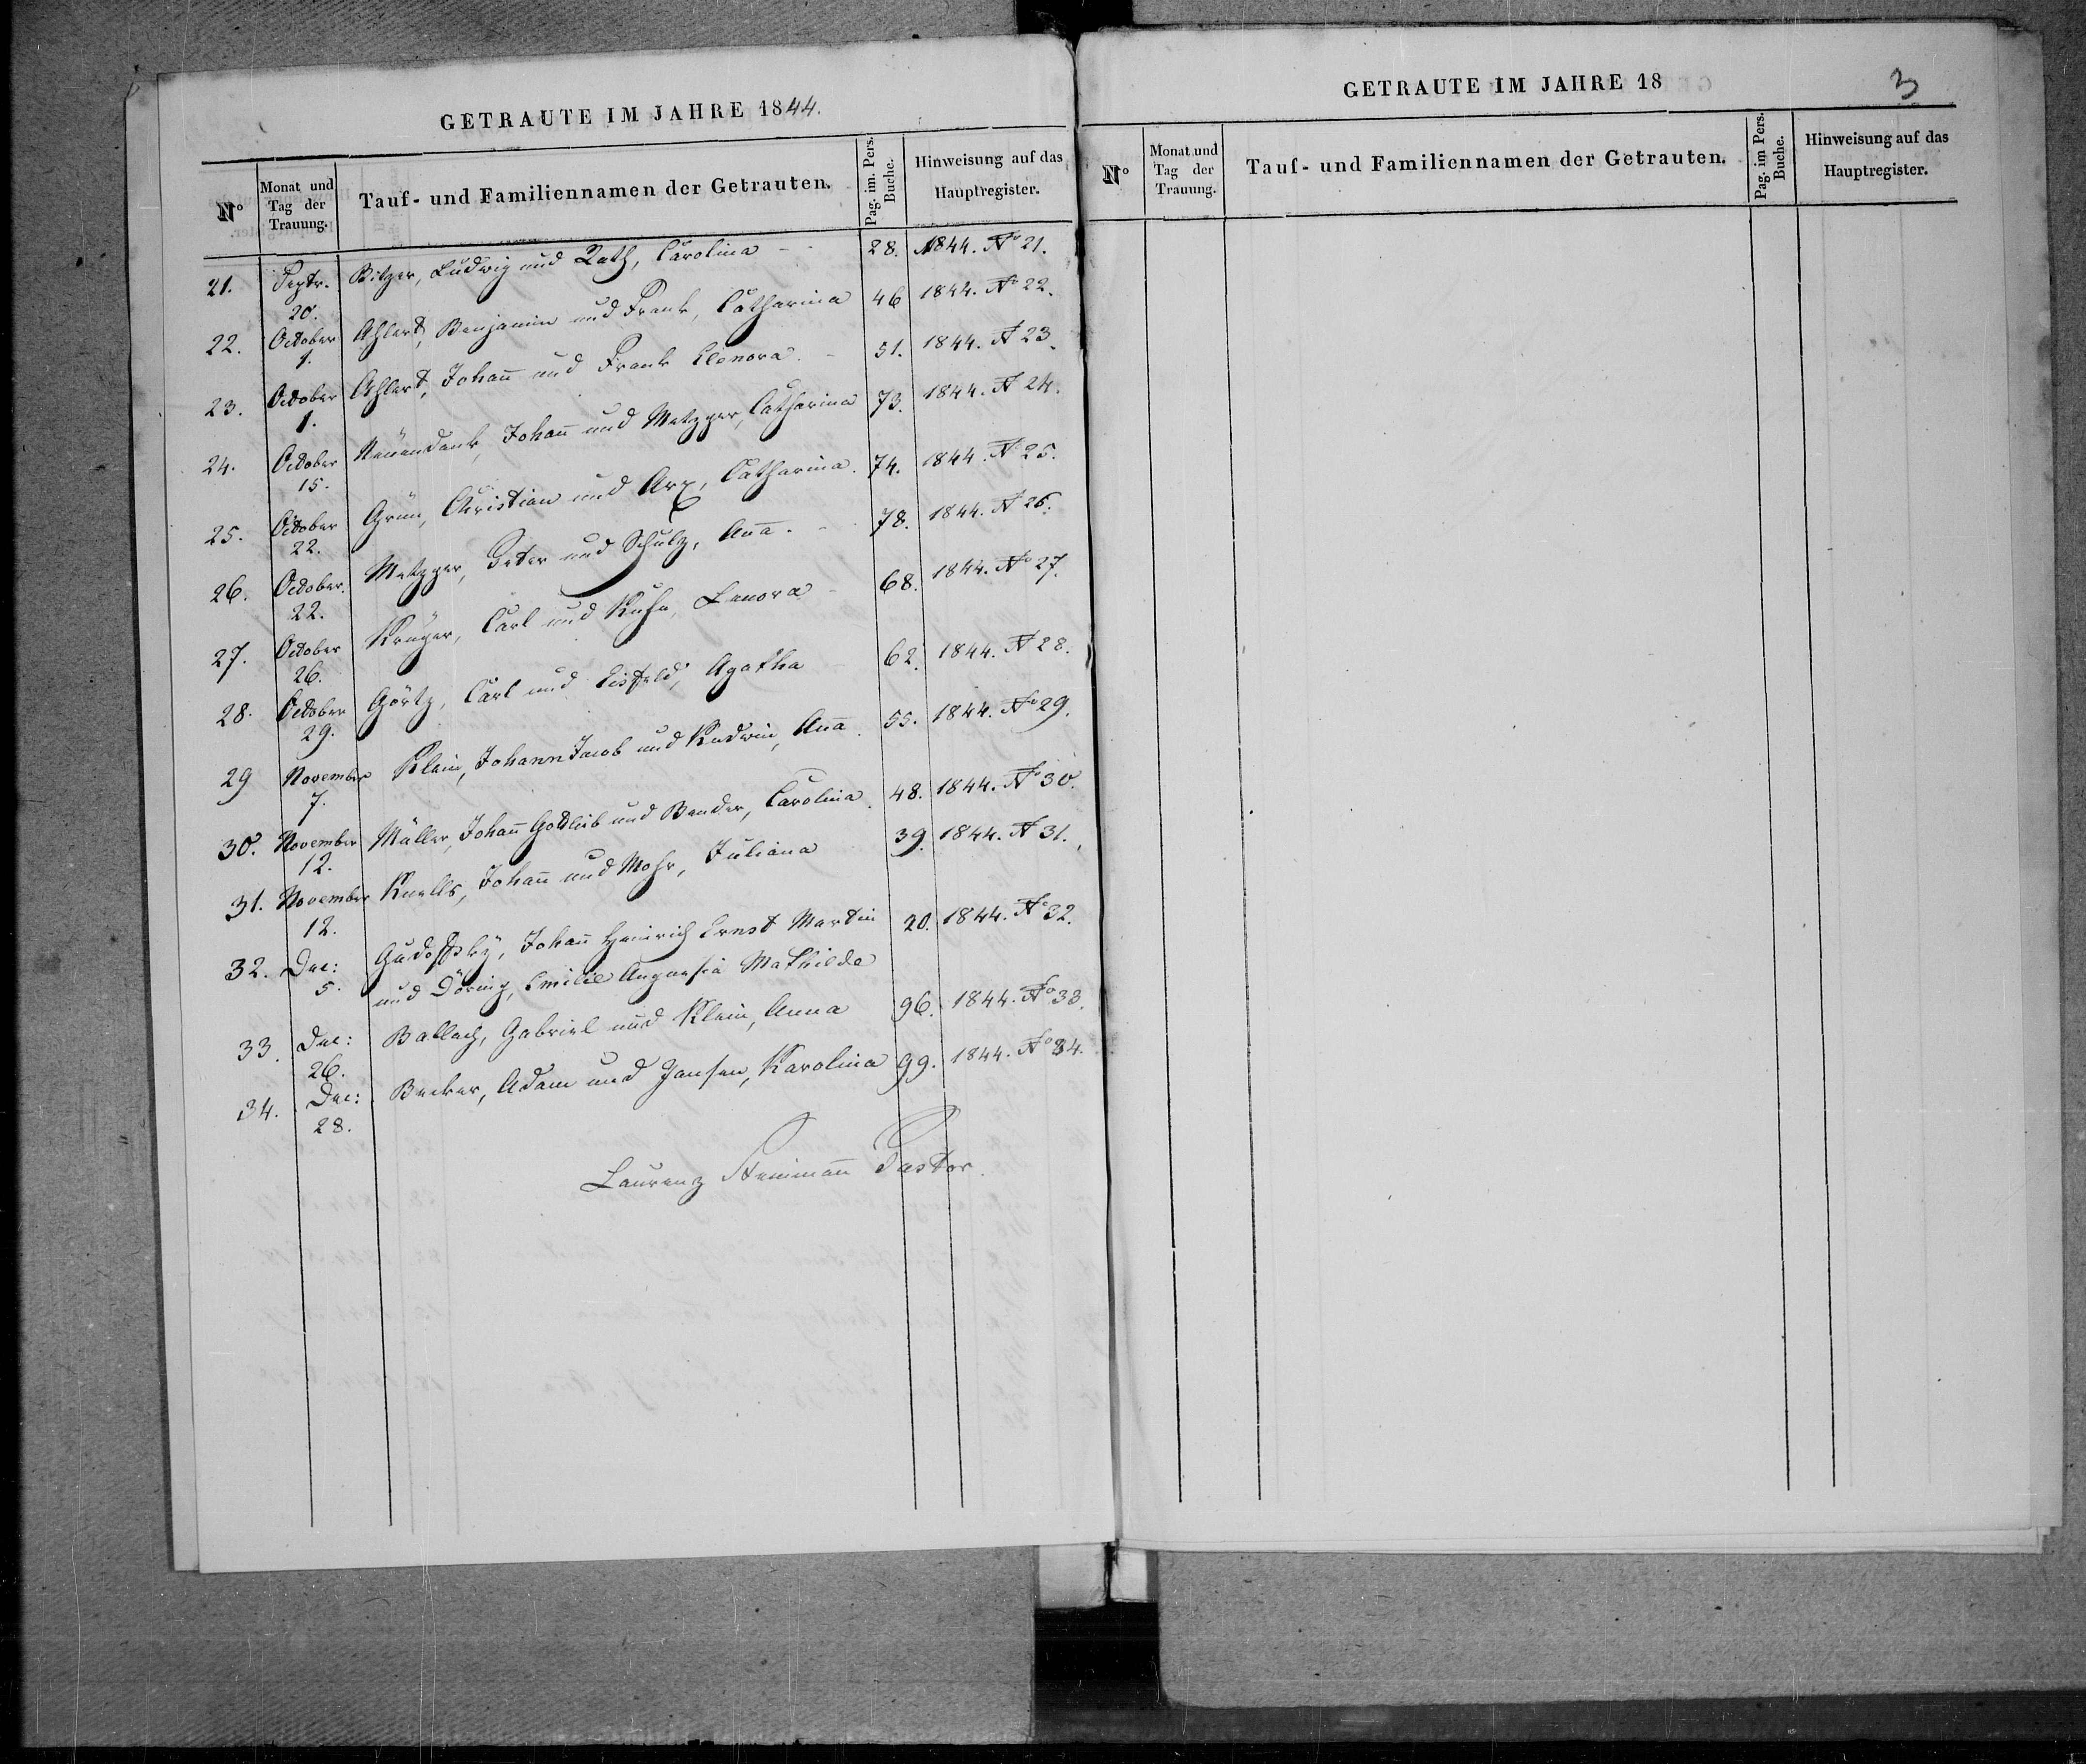 GETRAUTE IM JAHRE 1844.
No Monat und Tag der Trauung. Tauf- und Familiennamen der Getrauten. Pag. im. Pers. Buche. Hinweisung auf das Hauptregister.
21. Septr. 20. Bitzer, Ludwig und Rath, Carolina 28. 1844. No 21.
22. October 1. Ehlert, Benjamin und Frank, Catharina 46 1844. No 22.
23. October 1. Ehlert, Johan̄ und Frank Elenora. 51. 1844. No 23.
24. October 15. Neuendank, Johan̄ und Metzger, Catharina 73. 1844. No 24.
25. October 22. Grün, Christian und Arx, Catharina. 74. 1844. No 25.
26. October. 22. Metzger, Peter und Schulz, An̄a. 78. 1844. No 26.
27. October 26. Krüger, Carl und Kuhn, Lenora 68. 1844. No 27.
28. October 29. Görtz, Carl und Eisfeld, Agatha 62. 1844. No 28.
29 November 7. Klein, Johann Jacob und Kudwin, An̄a. 55. 1844. No 29.
30. November 12. Müller, Johan̄ Gottlieb und Bender, Carolina. 48. 1844. No 30.
31. November 12. Knells, Johan̄ und Mohr, Juliana 39. 1844. No 31.
32. Dec: 5. Johan̄ Heinrich Ernst Martin 20. 1844. No 32.
und Döring, Emilie Augusta Mathilde
33. Dec: 26. Ballach, Gabriel und Klein, Anna 96. 1844. No 33.
34. Dec: 28. Becker, Adam und Jansen, Karolina 99. 1844. No 34.
Laurenz Steinman̄ Pastor.
GETRAUTE IM JAHRE 18
3
No Monat und Tag der Trauung. Tauf- und Familiennamen der Getrauten. Pag. im Pers. Buche. Hinweisung auf das Hauptregister.